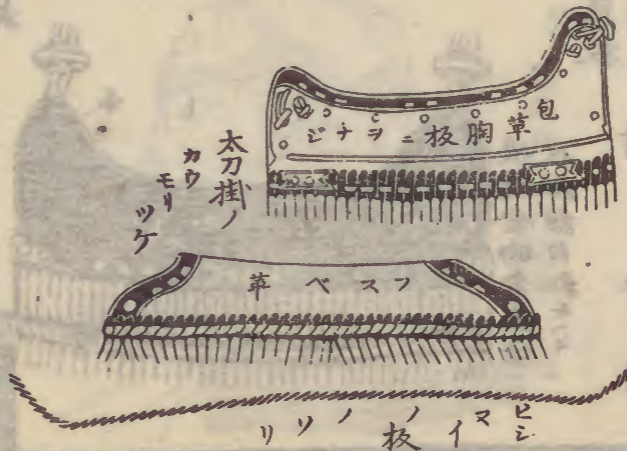 包革胸板ニヲナジ
太刀掛ノ
カウ
モリ
ツケ
フスベ革
ヒシマイノ板ノソリ